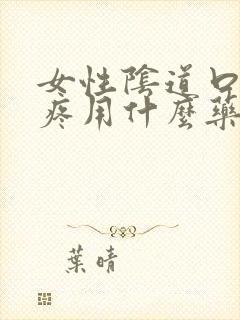 女性陰道口
疼用什麼藥
葉晴